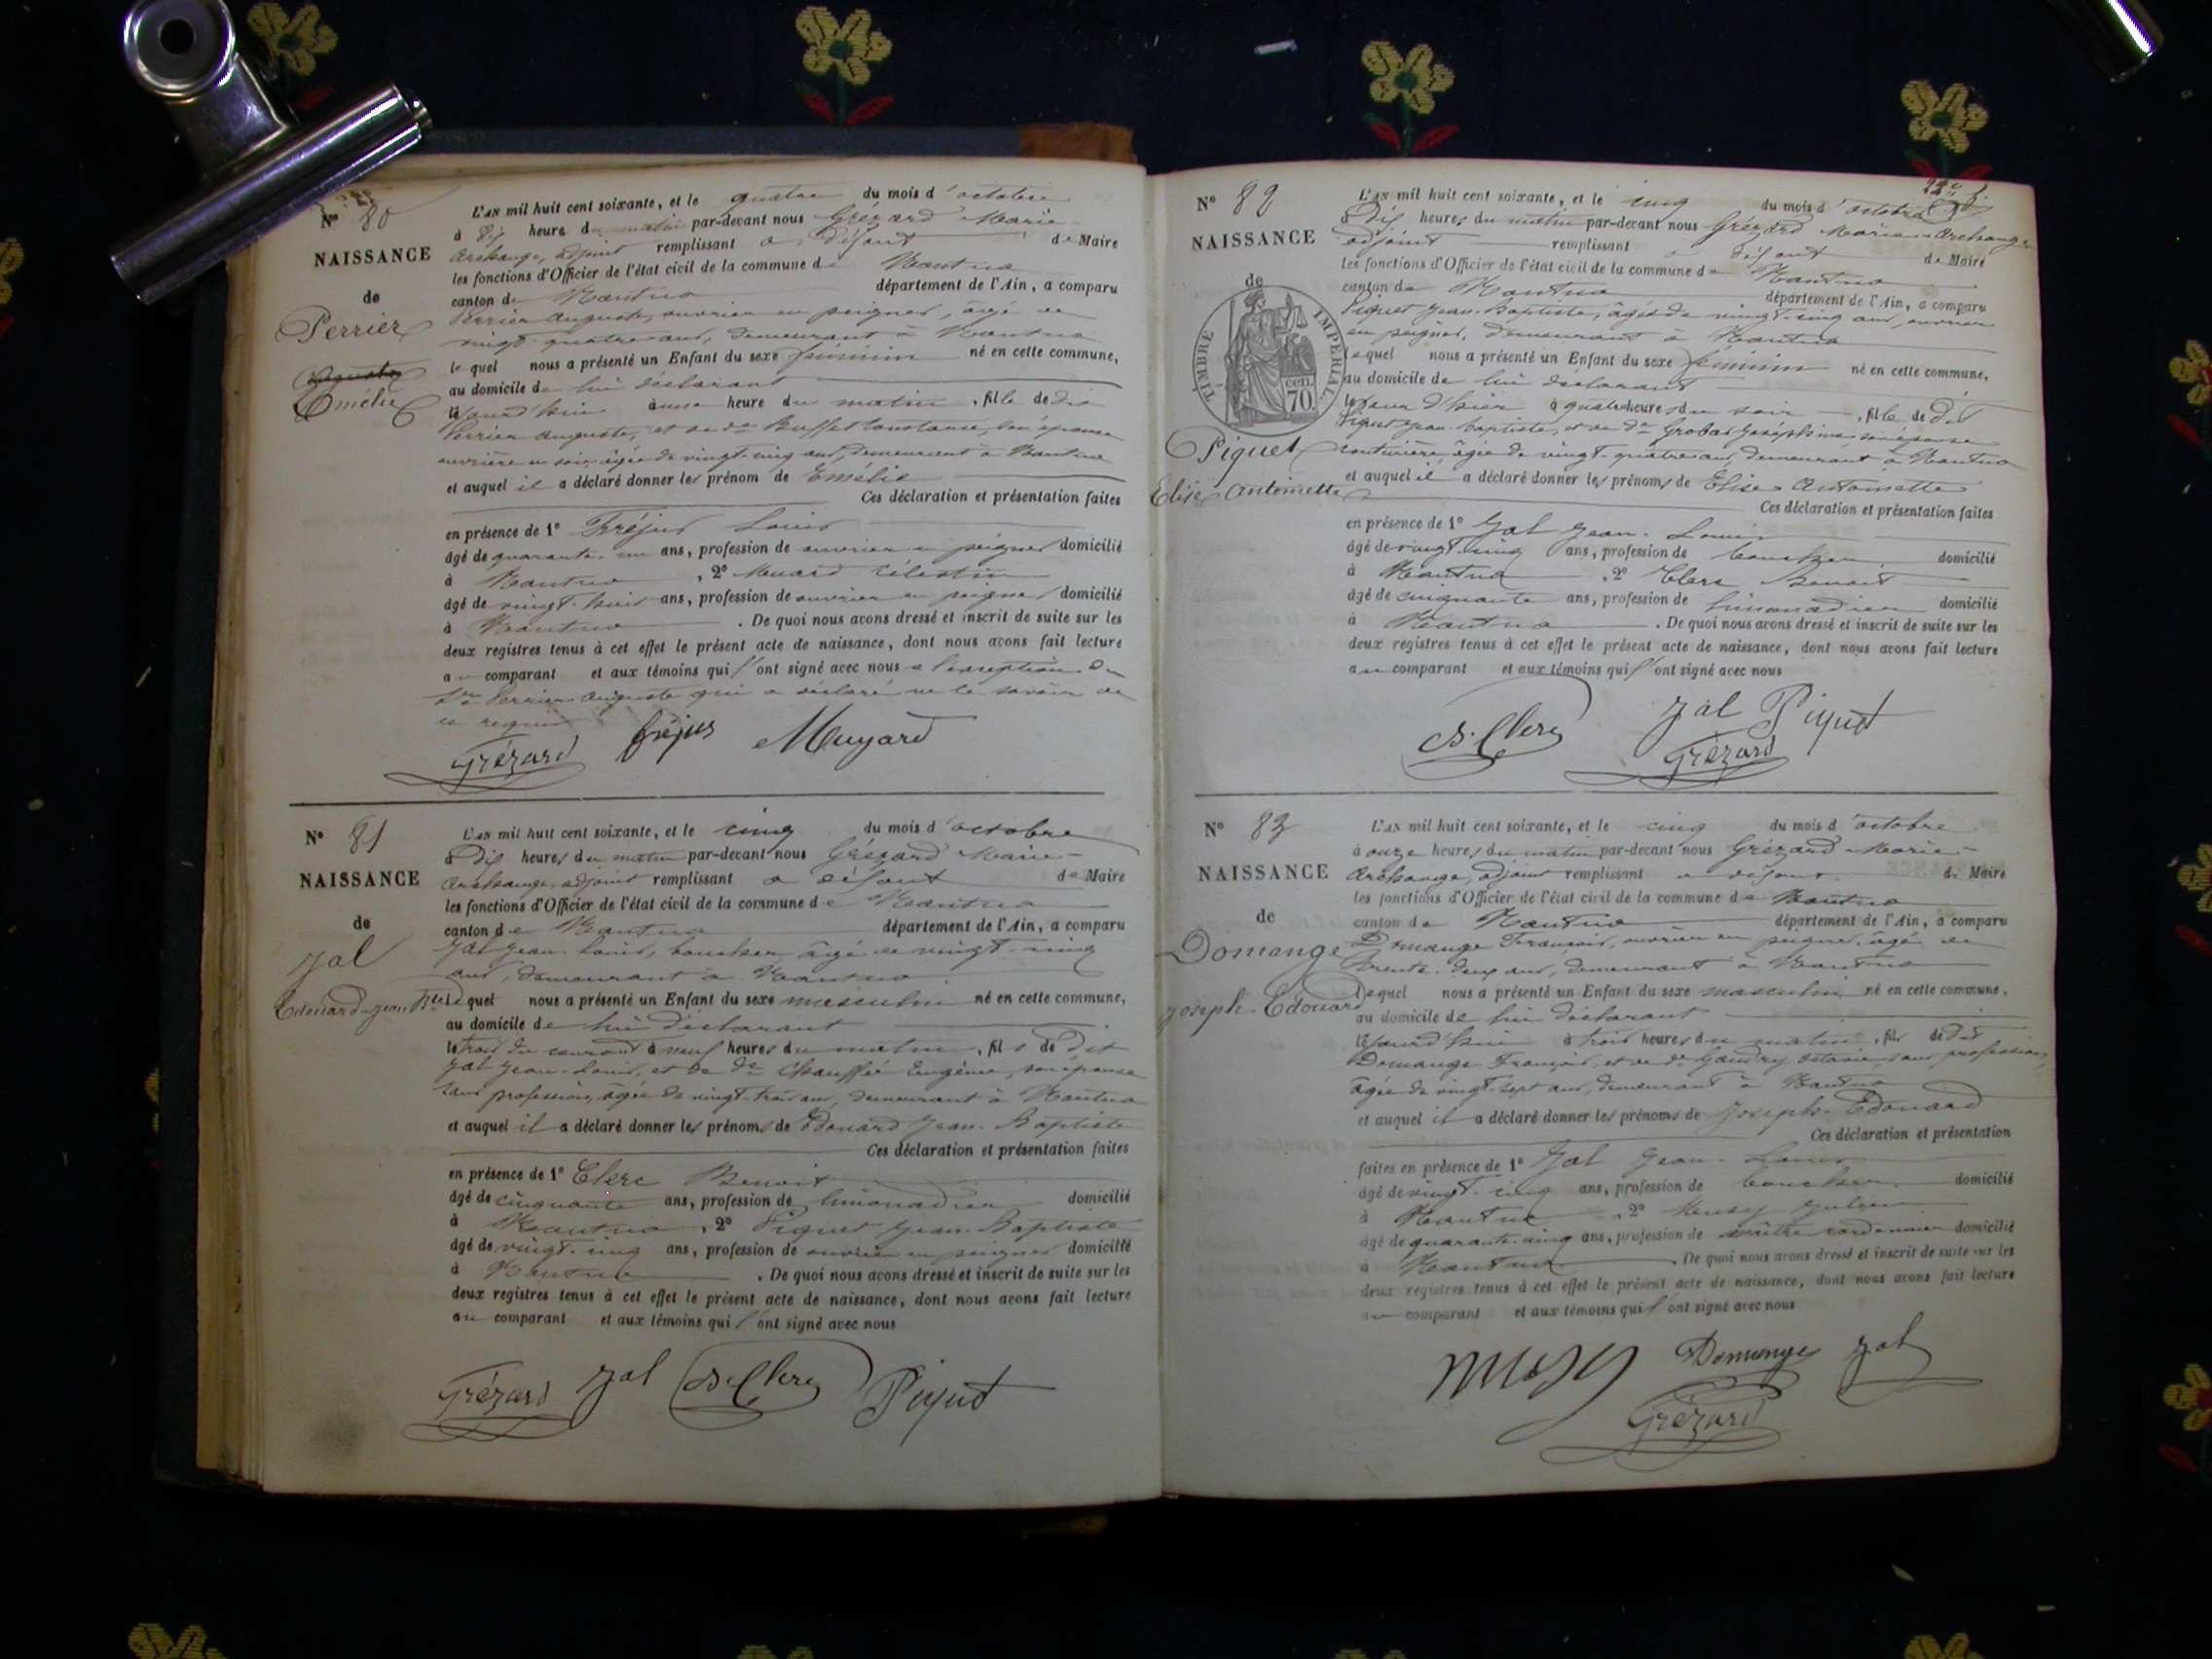 N° 80
NAISSANCE
de
Perrier
Auguste
Emélie
L'AN mil huit cent soixante, et le quatre du mois d'octobre
à Dix heures du matin par-devant nous Grézard Marie-
Archange, adjoint remplissant à défaut de Maire
les fonctions d'Officier de l'état civil de la commune de Nantua
canton de Nantua département de l'Ain, a comparu
Perrier Auguste, ouvrier en peignes, âgé de
vingt-quatre ans, demeurant à Nantua
lequel nous a présenté un Enfant du sexe féminin né en cette commune,
au domicile de lui déclarant
aujourd'hui à une heure du matin, fille de dit
Perrier Auguste, et de de Buffet Constance, son épouse
ouvrière en soie, âgée de vingt-cinq ans, demeurant à Nantua
et auquel il a déclaré donner les prénom de Emélie
Ces déclaration et présentation faites
en présence de 1° Fréjus Louis
âgé de quarante-un ans, profession de ouvrier en peignes domicilié
à Nantua, 2° Muard Célestin
âgé de vingt-huit ans, profession de ouvrier en peignes domicilié
à Nantua. De quoi nous avons dressé et inscrit de suite sur les
deux registres tenus à cet effet le présent acte de naissance, dont nous avons fait lecture
au comparant et aux témoins qui l'ont signé avec nous à l'exception du
Sr Perrier Auguste qui a déclaré ne le savoir de
ce requis
Grézard fréjus Muyard
N° 81
NAISSANCE
de
Jal
Edouard-Jean Bte
L'AN mil huit cent soixante, et le cinq du mois d'octobre
à Dix heures du matin par-devant nous Grézard Marie-
Archange, adjoint remplissant à défaut de Maire
les fonctions d'Officier de l'état civil de la commune de Nantua
canton de Nantua département de l'Ain, a comparu
Jal Jean-Louis, boucher âgé de vingt-cinq
ans, demeurant à Nantua
lequel nous a présenté un Enfant du sexe masculin né en cette commune,
au domicile de lui déclarant
le trois du courant à neuf heures du matin, fils de Dit
Jal Jean-Louis, et de de Chauffié Eugénie, son épouse
sans profession, âgée de vingt-trois ans, demeurant à Nantua
et auquel il a déclaré donner les prénoms de Edouard Jean-Baptiste
Ces déclaration et présentation faites
en présence de 1° Clerc Benoit
âgé de cinquante ans, profession de limonadier domicilié
à Nantua, 2° Piquet Jean-Baptiste
âgé de vingt-cinq ans, profession de ouvrier en peignes domicilié
à Nantua. De quoi nous avons dressé et inscrit de suite sur les
deux registres tenus à cet effet le présent acte de naissance, dont nous avons fait lecture
au comparant et aux témoins qui l'ont signé avec nous
Grézard Jal B. Clerc Piquet
N° 82
NAISSANCE
de
TIMBRE IMPERIAL
cen.
70.
Piquet
Elise Antoinette
L'AN mil huit cent soixante, et le cinq du mois d'octobre
à Dix heures du matin par-devant nous Grézard Marie-Archange
adjoint remplissant à défaut de Maire
les fonctions d'Officier de l'état civil de la commune de Nantua
canton de Nantua département de l'Ain, a comparu
Piquet Jean-Baptiste, âgé de vingt-cinq ans, ouvrier
en peignes, demeurant à Nantua
lequel nous a présenté un Enfant du sexe féminin né en cette commune,
au domicile de lui déclarant
le jour d'hier à quatre heures du soir, fille de dit
Piquet Jean-Baptiste, et de de Grobas Joséphine son épouse
couturière âgée de vingt-quatre ans, demeurant à Nantua
et auquel il a déclaré donner les prénoms de Elise Antoinette
Ces déclaration et présentation faites
en présence de 1° Jal Jean-Louis
âgé de vingt-cinq ans, profession de boucher domicilié
à Nantua, 2° Clerc Benoit
âgé de cinquante ans, profession de limonadier domicilié
à Nantua. De quoi nous avons dressé et inscrit de suite sur les
deux registres tenus à cet effet le présent acte de naissance, dont nous avons fait lecture
au comparant et aux témoins qui l'ont signé avec nous
B. Clerc Jal Piquet
Grézard
N° 83
NAISSANCE
de
Domange
Joseph-Edouard
L'AN mil huit cent soixante, et le cinq du mois d'octobre
à onze heures du matin par-devant nous Grézard Marie-
Archange, adjoint remplissant à défaut de Maire
les fonctions d'Officier de l'état civil de la commune de Nantua
canton de Nantua département de l'Ain, a comparu
Domange François, ouvrier en peignes, âgé de
trente-deux ans, demeurant à Nantua
lequel nous a présenté un Enfant du sexe masculin né en cette commune,
au domicile de lui déclarant
aujourd'hui à trois heures du matin, fils de dit
Domange François, et de de Gaudry Octavie, sans profession,
âgée de vingt-sept ans, demeurant à Nantua
et auquel il a déclaré donner les prénoms de Joseph-Edouard
Ces déclaration et présentation
faites en présence de 1° Jal Jean-Louis
âgé de vingt-cinq ans, profession de boucher domicilié
à Nantua, 2° Musy
âgé de quarante-cinq ans, profession de maître cordonnier domicilié
à Nantua. De quoi nous avons dressé et inscrit de suite sur les
deux registres tenus à cet effet le présent acte de naissance, dont nous avons fait lecture
au comparant et aux témoins qui l'ont signé avec nous
Musy Domange Jal
Grézard